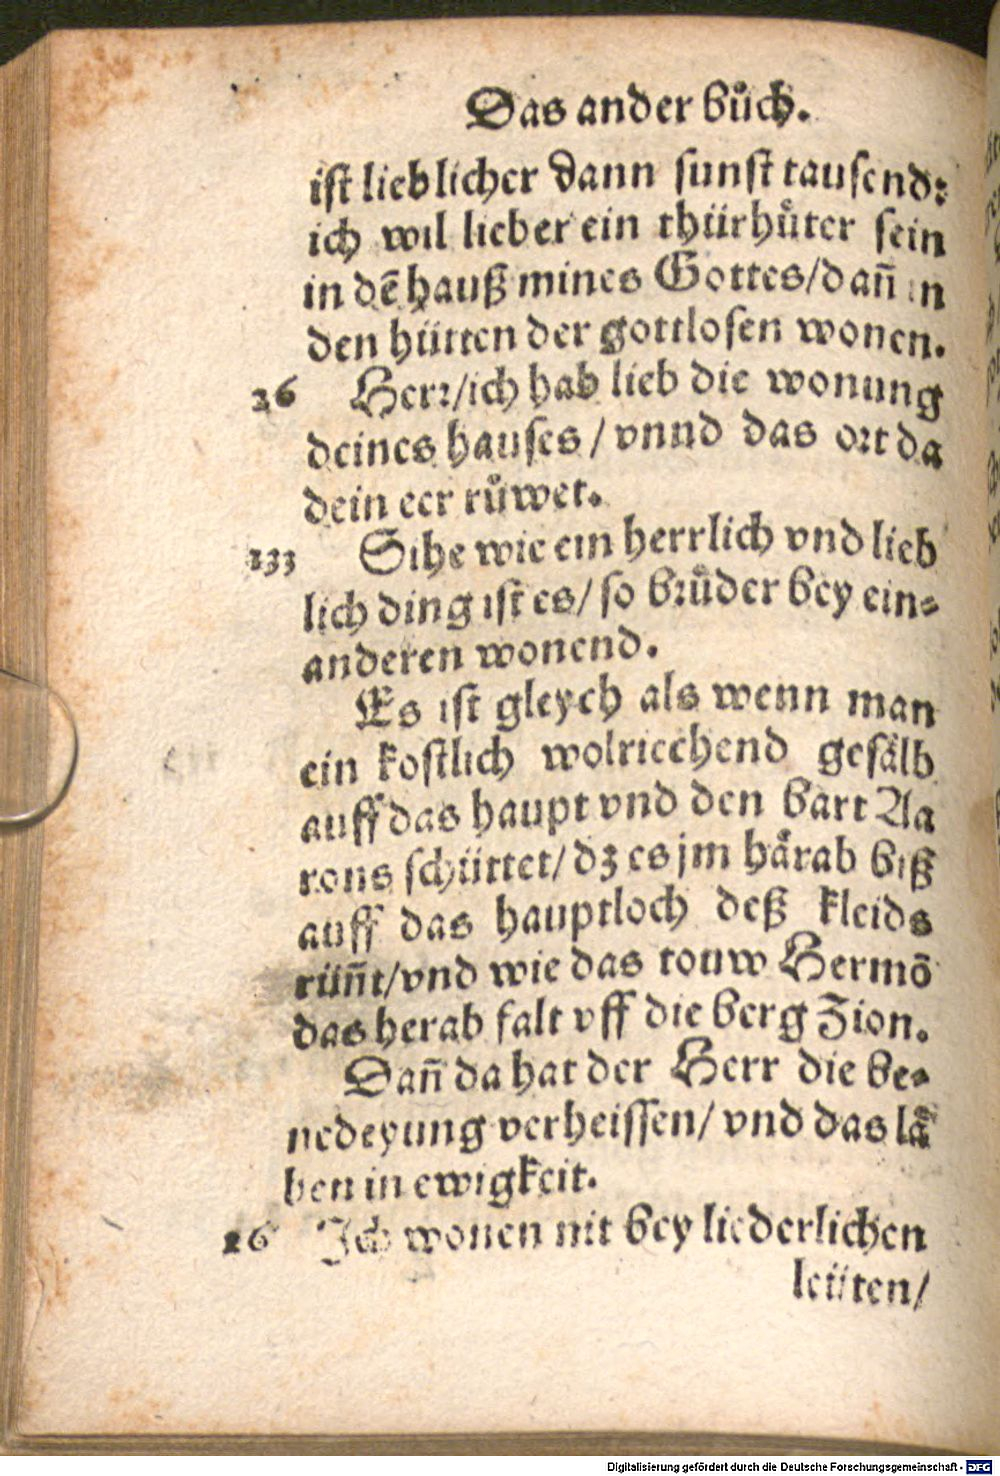 Das ander bůch.
ist lieblicher dann sunst tausend:
ich wil lieber ein thürhuͤter sein
in dē hauß mines Gottes/dañ in
den hütten der gottlosen wonen.
26 Herꝛ/ich hab lieb die wonung
deines hauses/vnnd das oꝛt da
dein eer růwet.
133 Sihe wie ein herrlich vnd lieb
lich ding ist es/so bꝛuͤder bey ein⸗
anderen wonend.
Es ist gleych als wenn man
ein kostlich wolriechend gesälb
auff das haupt vnd den bart Aa
rons schüttet/dz es jm haͤrab biß
auff das hauptloch deß kleids
rüñt/vnd wie das touw Hermō
das herab falt vff die berg Zion.
Dañ da hat der Herr die be⸗
nedeyung verheissen/vnd das laͤ
ben in ewigkeit.
26 Ich wonen nit bey liederlichen
leüten/
Digitalisierung gefördert durch die Deutsche Forschungsgemeinschaft - DFG